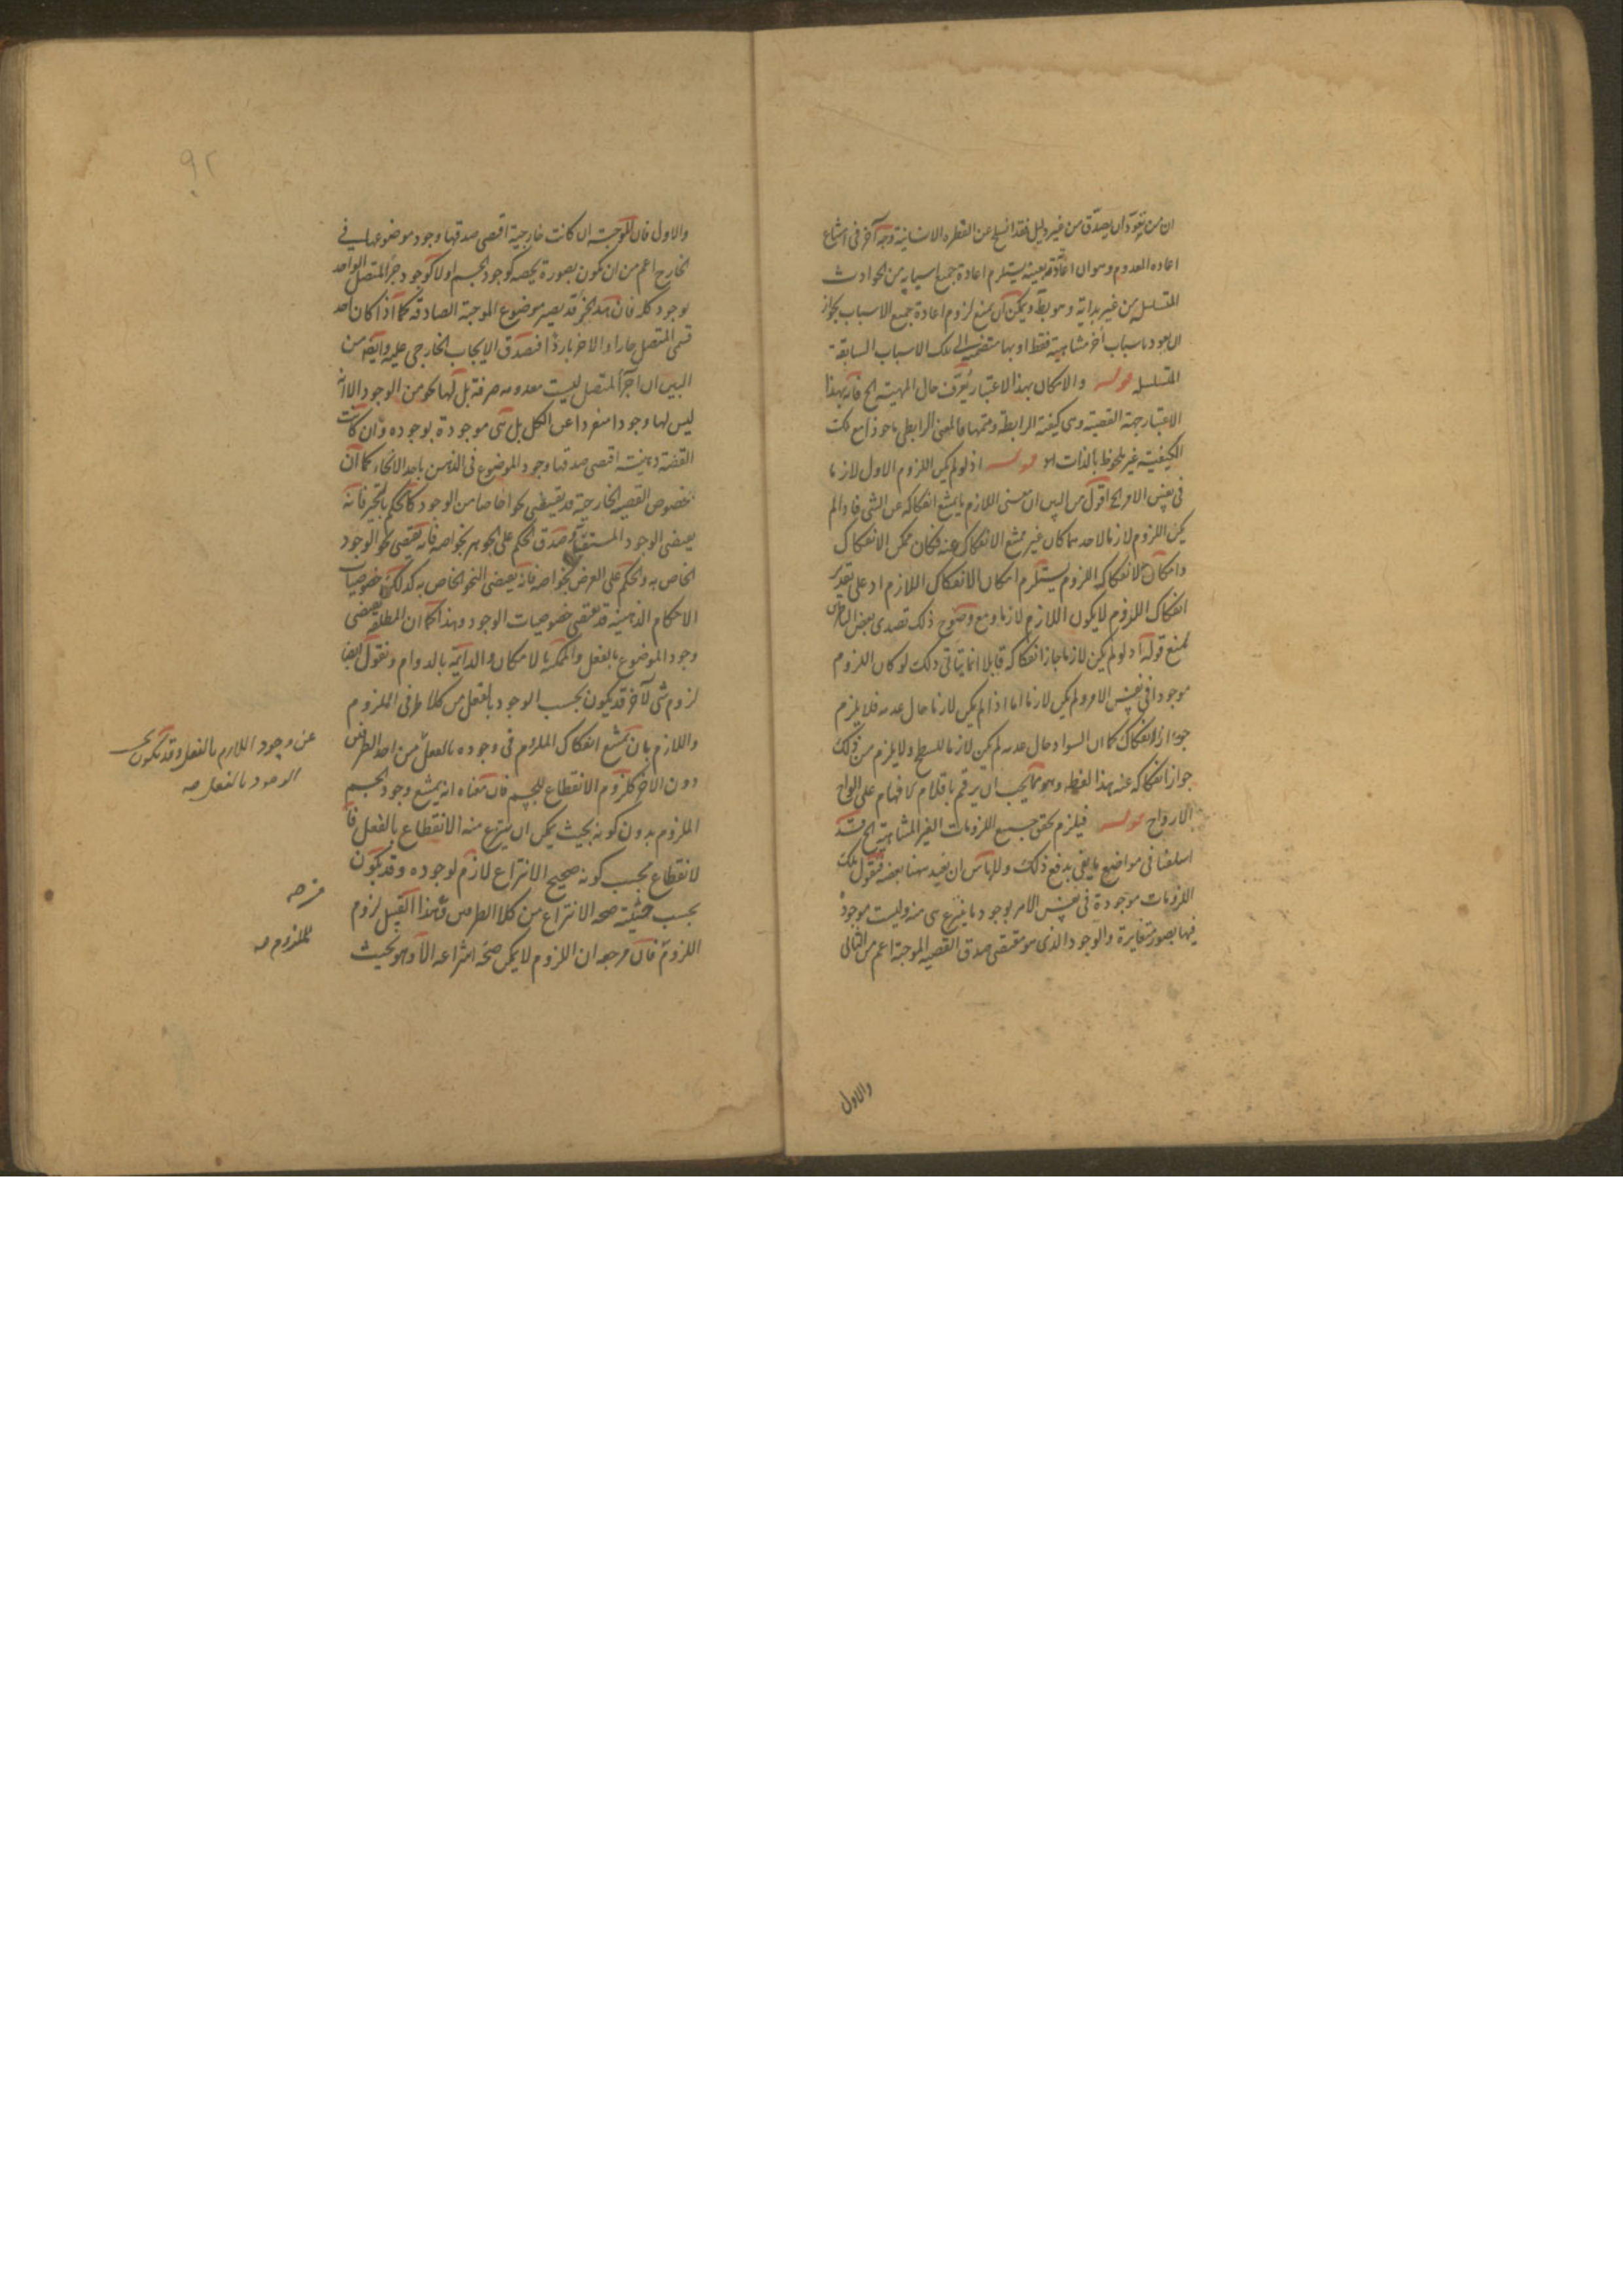 ان من تعود ان يصدق من غير دليل فقد انسلخ عن الفطرة الانسانية وجه آخر فى امتناع
اعاده المعدوم وهو ان اعادته بعينه يستلزم اعادة جميع اسبابه من الحوادث
المتسلسله من غير بداية وهو بط ويمكن ان يمنع لزوم اعادة جميع الاسباب بجواز
ان يعود باسباب أخر متناهية فقط او بها منضمة الى تلك الاسباب السابقة
المتسلسله قوله والامكان بهذا الاعتبار يُعرّف حال المهية الخ فانه بهذا
الاعتبار جهة القضية وهى كيفية الرابطة ومتممها فالمعنى الرابطى ماخوذا مع تلك
الكيفية غير ملحوظ بالذات قوله اذ لو لم يكن اللزوم الاول لازما
فى نفس الامر الخ اقول من البين ان معنى اللازم ما يمتنع انفكاكه عن الشى فاذا لم
يكن اللزوم لازما لاحدهما كان غير ممتنع الانفكاك عنه فكان ممكن الانفكاك
وامكان الانفكاك اللزوم يستلزم امكان الانفكاك اللازم اذ على تقدير
انفكاك اللزوم لا يكون اللازم لازما ومع وضوح ذلك تصدى بعض الناظرين
لمنع قوله اذ لو لم يكن لازما جاز انفكاكه قايلا انما يتاتى ذلك لو كان اللزوم
موجودا فى نفس الامر ولم يكن لازما اما اذا لم يكن لازما حال عدمه فلا يلزم
جواز الانفكاك كما ان السواد حال عدمه لم يكن لازما للسطح ولا يلزم من ذلك
جواز انفكاكه عنه بهذا لفظه وهو مما يجب ان يرقم باقلام الافهام على الواح
الارواح قوله فيلزم تحقق جميع اللزومات الغير المتناهية الخ قد
اسلفنا فى مواضع ما يفى بدفع ذلك ولا باس ان نعيد ههنا بعضه فنقول تلك
اللزومات موجودة فى نفس الامر بوجود ما ينتزع هى منه وليست موجودة
فيها بصور متغايرة والوجود الذى هو مقتضى صدق القضيه الموجبة اعم من الثانى
والاول
٩٢
والاول فان الموجبة ان كانت خارجية اقتضى صدقها وجود موضوعها فى
الخارج اعم من ان يكون بصورة تخصه كوجود الجسم اولا كوجود جزء المتصل الواحد
بوجود كله فان هذا الجزء قد يصير موضوع الموجبة الصادقة كما اذا كان احد
قسمى المتصل حارا والاخر باردًا فصدق الايجاب الخارجى عليه وايضا من
البين ان اجزأ المتصل ليست معدومه صرفة بل لها نحو من الوجود الا انه
ليس لها وجودا منفردا عن الكل بل هى موجودة بوجوده وان كانت
القضية ذهنية اقتضى صدقها وجود الموضوع فى الذهن باحد الانحاء كما ان
خصوص القضيه الخارجية قد يقتضى نحوا خاصا من الوجود كالحكم بالتحيز فانه
يقتضى الوجود المستقل وصدق الحكم على الجوهر بخواصه فانه يقتضى نحو الوجود
الخاص به والحكم على العرض بخواصه فانه يقتضى النحو الخاص به كذلك خصوصيات
الاحكام الذهنية قد يقتضى خصوصيات الوجود وهذا كما ان المطلقه يقتضى
وجود الموضوع بالفعل والممكنه بالامكان والدائمة بالدوام ونقول ايضا
لزوم شى لآخر قد يكون بحسب الوجود بالفعل من كلا طرفى الملزوم
واللازم بان يمتنع انفكاك الملزوم فى وجوده بالفعل من احد الطرفين
دون الاخر كلزوم الانقطاع للجسم فان معناه انه يمتنع وجود الجسم
الملزوم بدون كونه بحيث يمكن ان ينتزع منه الانقطاع بالفعل فا
لانقطاع بحسب كونه صحيح الانتزاع لازم لوجوده وقد يكون
بحسب حيثية صحة الانتزاع من كلا الطرفين وهذا القبيل لزوم
اللزوم فان مرجعه ان اللزوم لا يمكن صحة انتزاعه الا وهو بحيث
عن وجود اللازم بالفعل وقد يكون بحسب
الوجود بالفعل صه
من صه
للملزوم صه